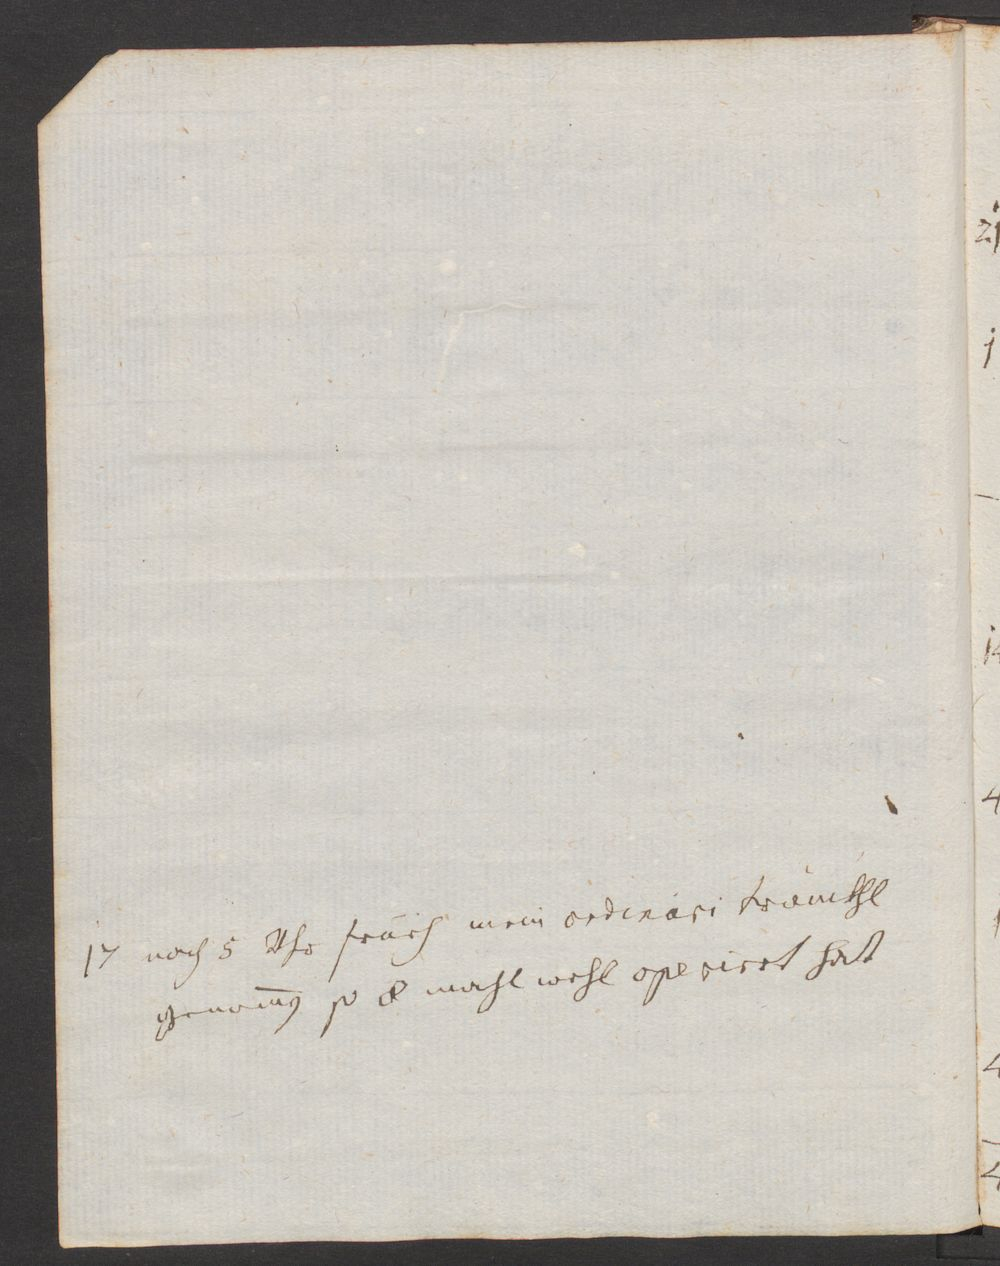 17 nach 5 Uhr frueh mein ordinari tränckhl
genom̅en so 8 mahl wohl operiert hat